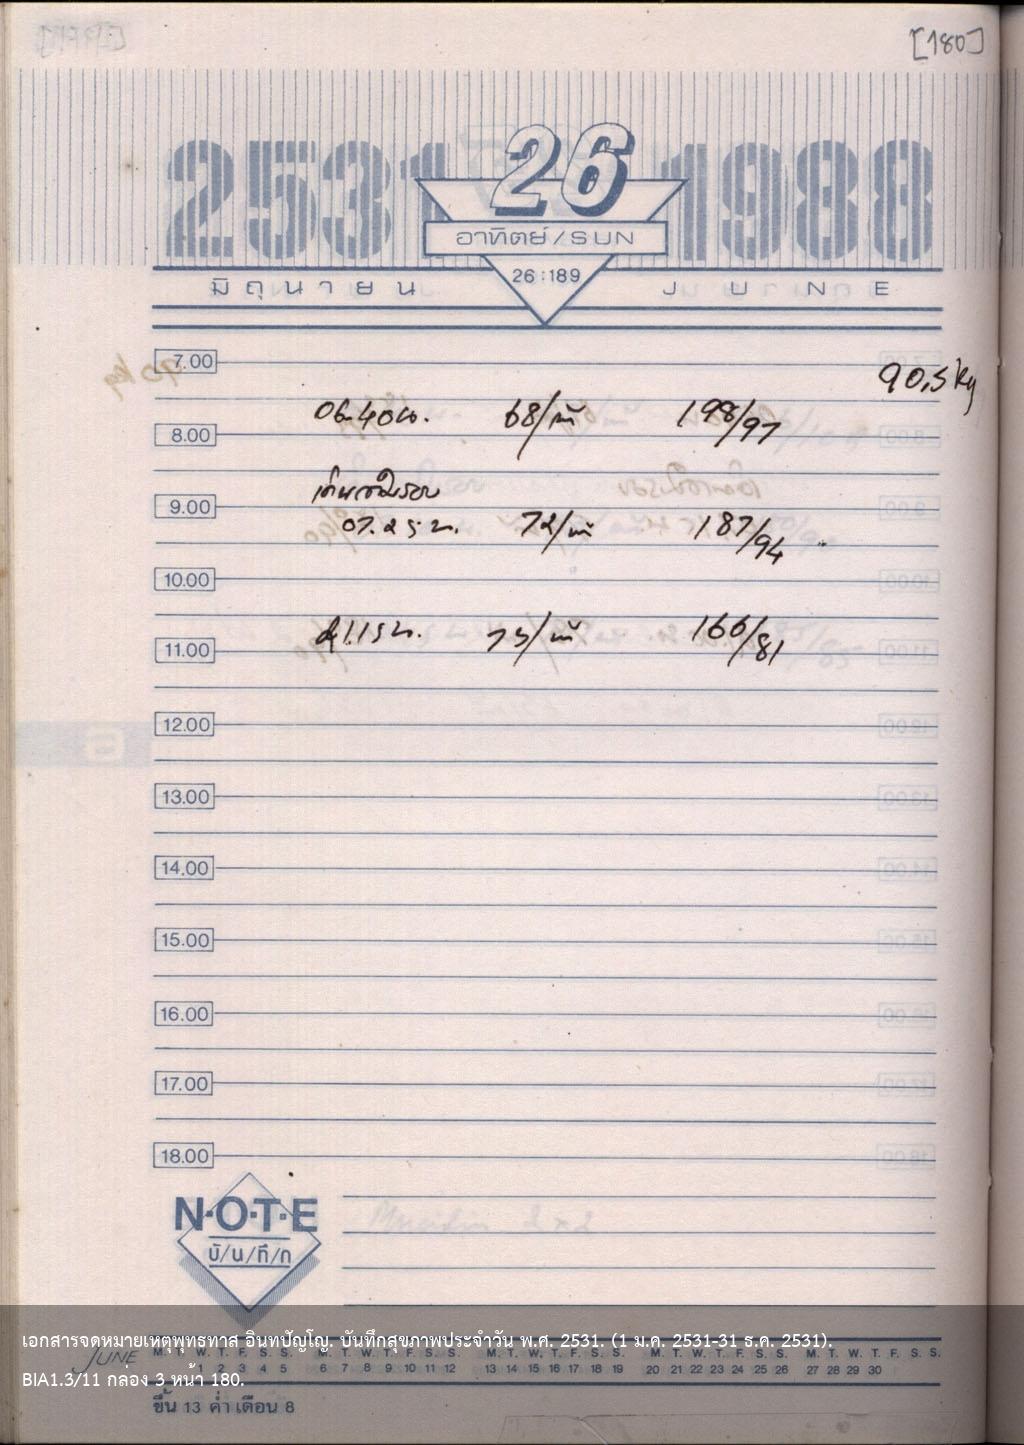 [180]
2531 26 1988
อาทิตย์/SUN
26:189
มิถุนายน JUNE
7.00
90.5 kg
06.40 น. 68/นาที 198/97
8.00
9.00
07.25 น. 72/นาที 187/94
10.00
21.15 น. 75/นาที 166/81
11.00
12.00
13.00
14.00
15.00
16.00
17.00
18.00
N·O·T·E
บั/น/ทึ/ก
เอกสารจดหมายเหตุพุทธทาส อินทปัญโญ. บันทึกสุขภาพประจำวัน พ.ศ. 2531. (1 ม.ค. 2531-31 ธ.ค. 2531).
JUNE M. T. W. T. F. S. S. M. T. W. T. F. S. S. M. T. W. T. F. S. S. M. T. W. T. F. S. S. M. T. W. T. F. S. S.
1 2 3 4 5 6 7 8 9 10 11 12 13 14 15 16 17 18 19 20 21 22 23 24 25 26 27 28 29 30
BIA1.3/11 กล่อง 3 หน้า 180.
ขึ้น 13 ค่ำ เดือน 8